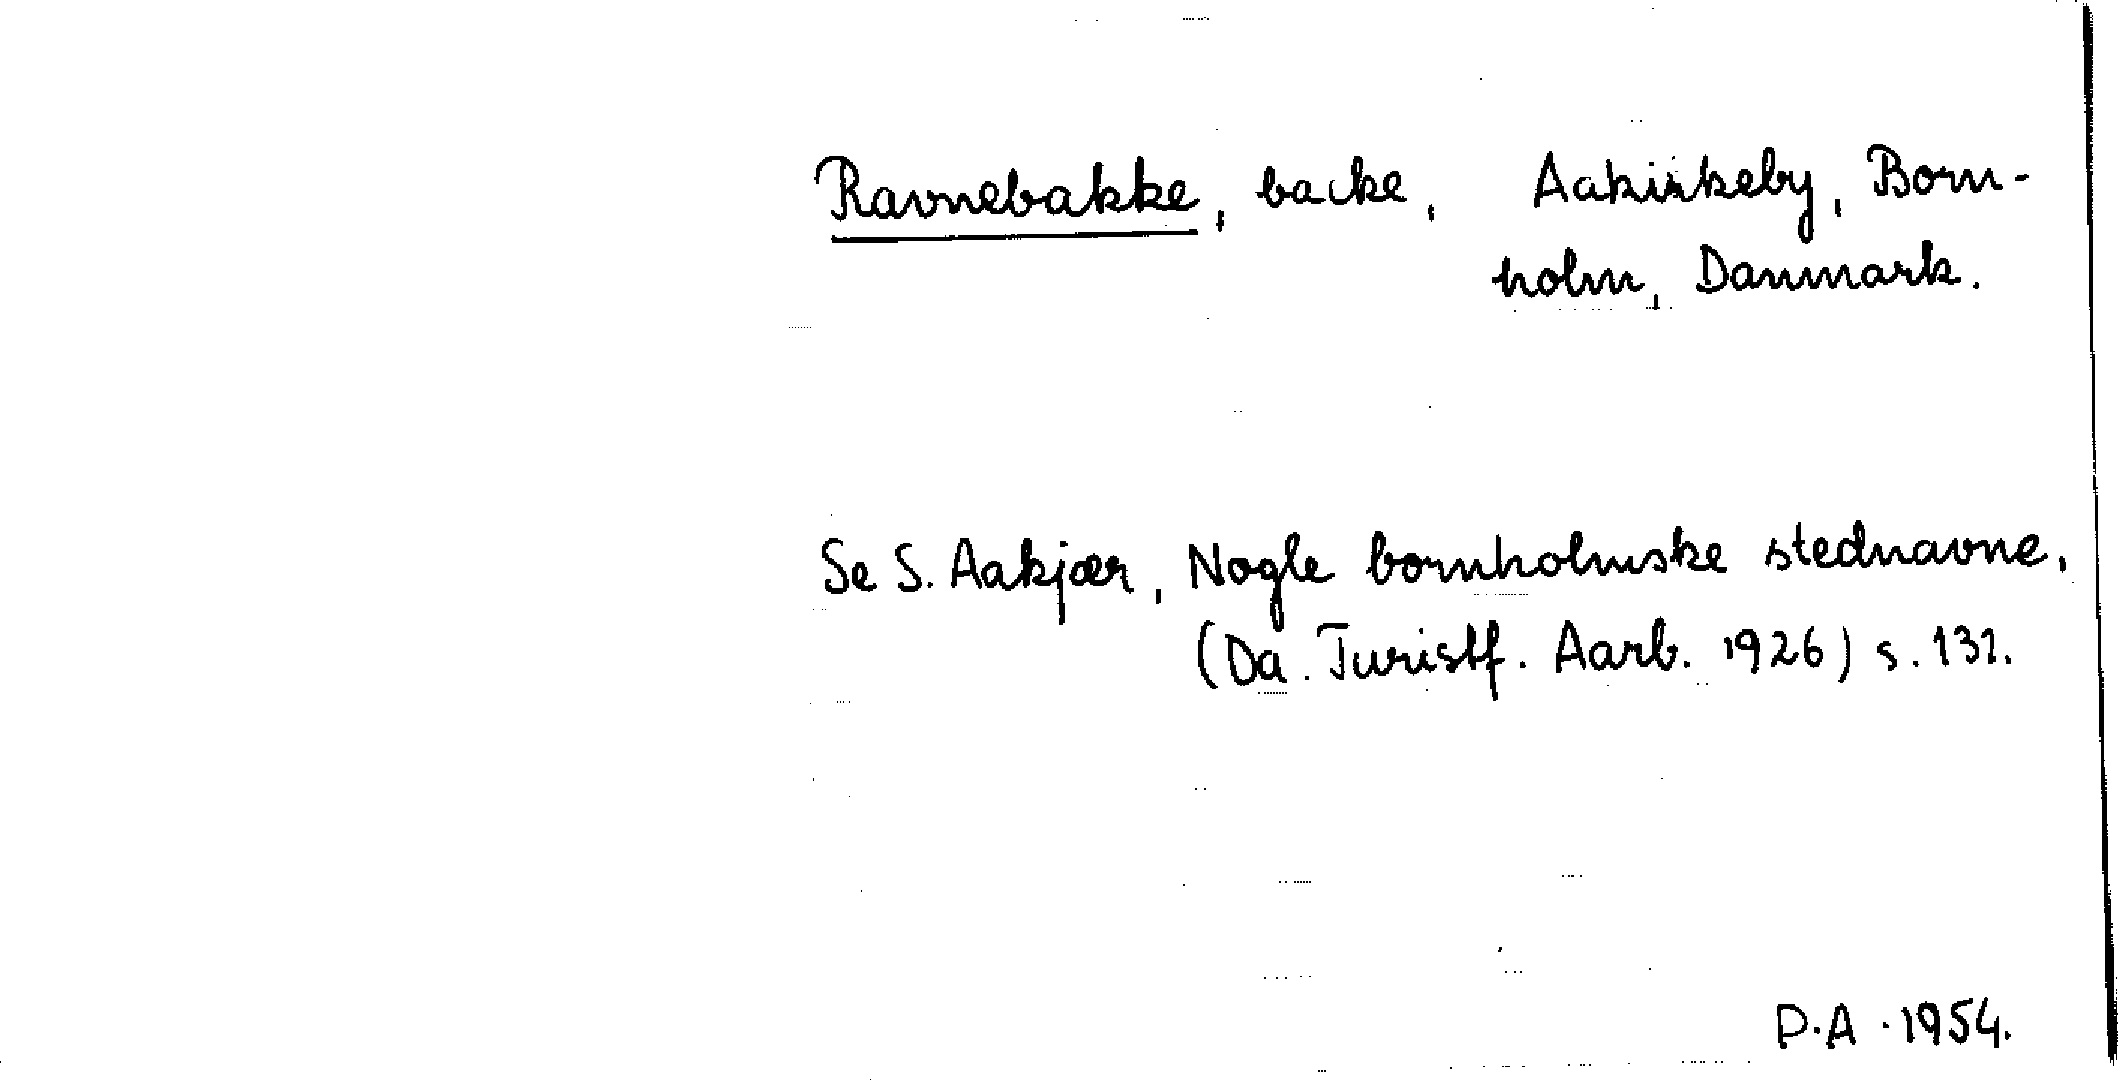 Ravnebakke, backe, Aakirkeby, Born-
holm, Danmark.
Se S. Aakjær, Nogle bornholmske stednavne,
(Da. Turistf. Aarb. 1926) s. 131.
P.A. 1954.